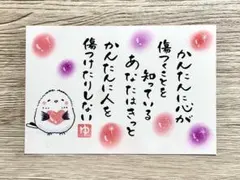 かんたんに心が
傷つくことを
知っている
あなたはきっと
かんたんに人を
傷つけたりしない
ゆ